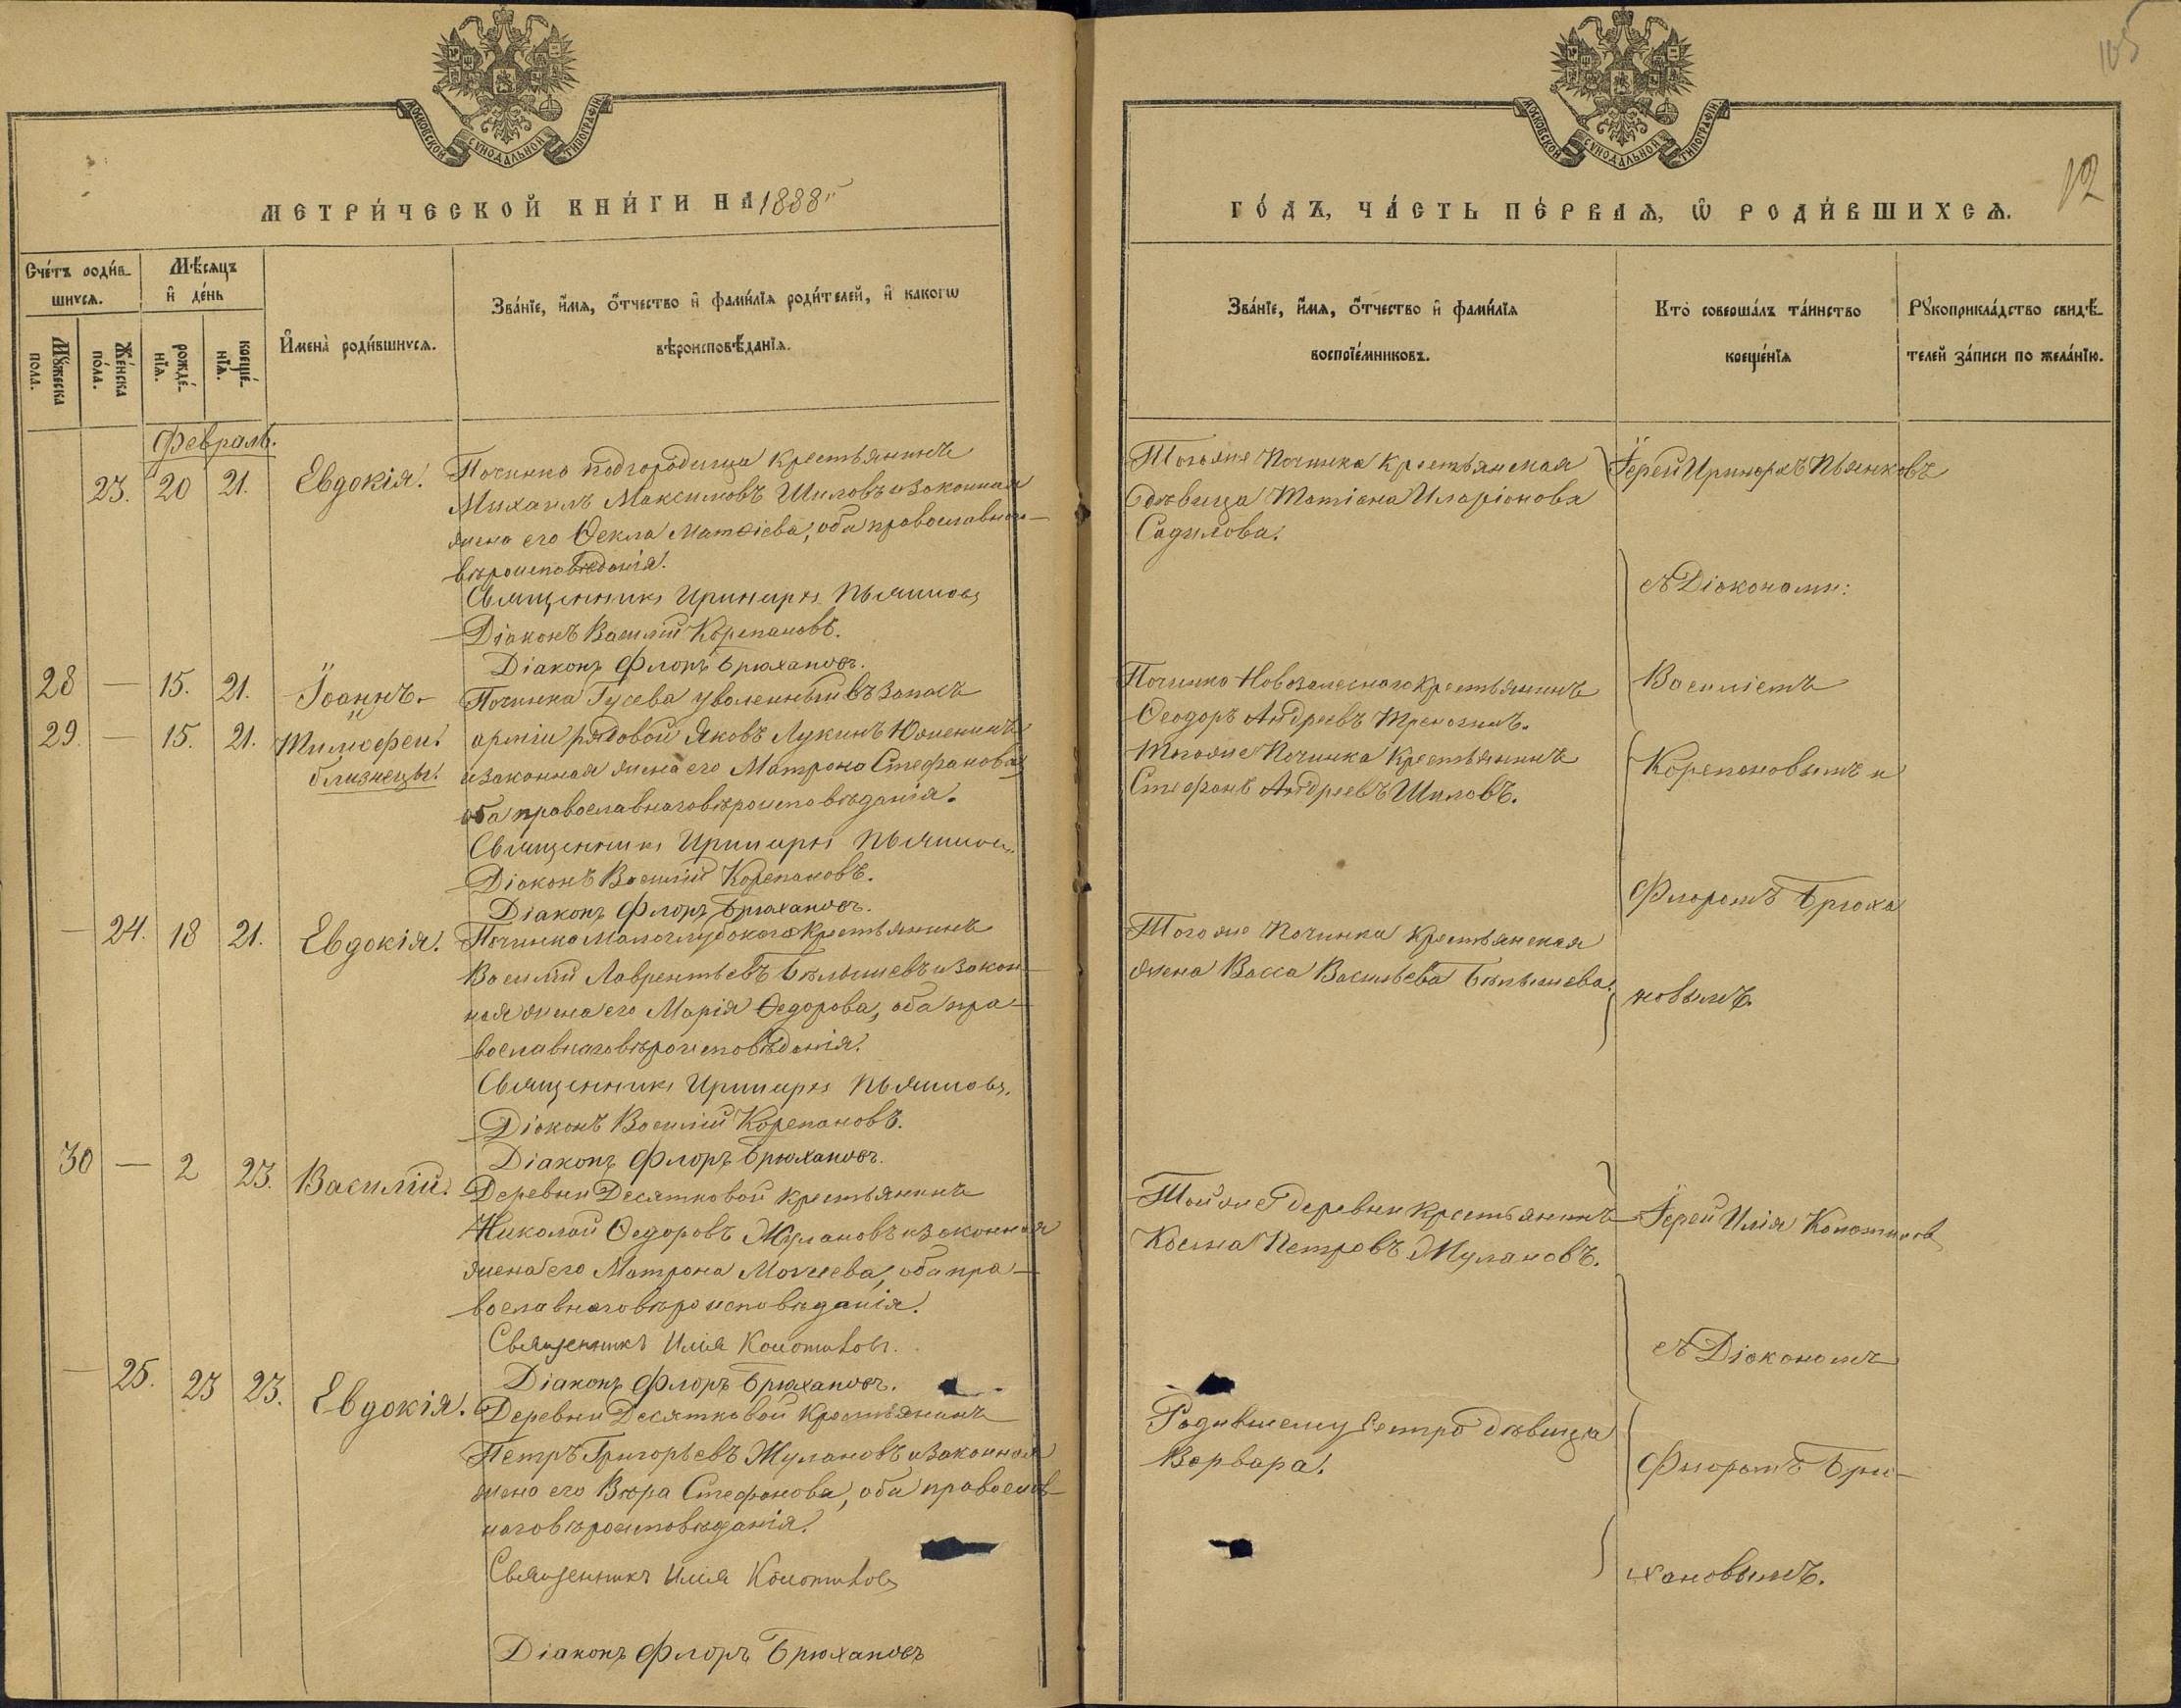 105
12
МОСКОВСКОЙ СѴНОДАЛЬНОЙ ТИПОГРАФІИ
МОСКОВСКОЙ СѴНОДАЛЬНОЙ ТИПОГРАФІИ
МЕТРИ́ЧЕСКОЙ КНИ́ГИ НА 1888й
ГО́ДЪ, ЧА́СТЬ ПЕ́РВАѦ, Ѡ҆ РОДИ́ВШИХСѦ.
Сче́тъ роди́в-
шихсѧ.
Мѣ́сѧцъ
и҆ де́нь
Мꙋ́жеска
пола.
Же́нска
по́ла.
рожде́-
нїѧ.
креще́-
нїѧ.
И҆мена̀ роди́вшихсѧ.
Зва́нїе, и҆́мѧ, ѻ҆́тчество и҆ фами́лїѧ роди́телей, и҆ какогѡ
вѣроисповѣ́данїѧ.
Зва́нїе, и҆́мѧ, ѻ҆́тчество и҆ фами́лїѧ
воспрїе́мниковъ.
Кто̀ соверша́лъ та́инство
креще́нїѧ
Рꙋкоприкла́дство свидѣ́-
телей за́писи по жела́нїю.
Февраль.
23. 20 21. Евдокія.
Починка Подгородища крестьянинъ
Михаилъ Максимовъ Шиловъ и законная
жена его Ѳекла Матѳіева, оба православнаго
вѣроисповѣданія.
Священникъ Иринархъ Пьянковъ
Діаконъ Василій Корепановъ.
Діаконъ Флоръ Брюхановъ.
Тогоже Починка крестьянская
дѣвица Татіана Иларіонова
Садилова.
Іерей Иринархъ Пьянковъ
съ Діаконами:
28 — 15. 21. Іоаннъ. и
29. — 15. 21. Тимофей.
близнецы.
Починка Гусева уволенный въ запасъ
арміи рядовой Яковъ Лукинъ Юженинъ
и законная жена его Матрона Стефанова,
оба православнаго вѣроисповѣданія.
Священникъ Иринархъ Пьянковъ
Діаконъ Василій Корепановъ.
Діаконъ Флоръ Брюхановъ.
Починка Новозалеснаго крестьянинъ
Ѳеодоръ Андреевъ
Тогоже Починка крестьянинъ
Стефанъ Андреевъ Шиловъ.
Василіемъ
Корепановымъ и
Флоромъ Брюха
новымъ.
— 24. 18 21. Евдокія.
Починка Малоглубокаго крестьянинъ
Василій Лаврентьевъ Бѣлышевъ и закон-
ная жена его Марія Ѳедорова, оба пра-
вославнаго вѣроисповѣданія.
Священникъ Иринархъ Пьянковъ.
Діаконъ Василій Корепановъ.
Діаконъ Флоръ Брюхановъ.
Тогоже Починка крестьянская
жена Васса Васильева Бѣлышева.
30 — 2 23. Василій.
Деревни Десятковой крестьянинъ
Николай Ѳедоровъ Жулановъ и законная
жена его Матрона Моисеева, оба пра-
вославнаго вѣроисповѣданія.
Священникъ Илія
Діаконъ Флоръ Брюхановъ.
Тойже деревни крестьянинъ
Косма Петровъ Жулановъ.
Іерей Илія
съ Діакономъ
— 25. 23 23. Евдокія.
Деревни Десятковой крестьянинъ
Петръ Григорьевъ Жулановъ и законная
жена его Вѣра Стефанова, оба православ-
наго вѣроисповѣданія.
Священникъ Илія
Діаконъ Флоръ Брюхановъ
Родившему сестра дѣвица
Варвара.
Флоромъ Брю-
хановымъ.